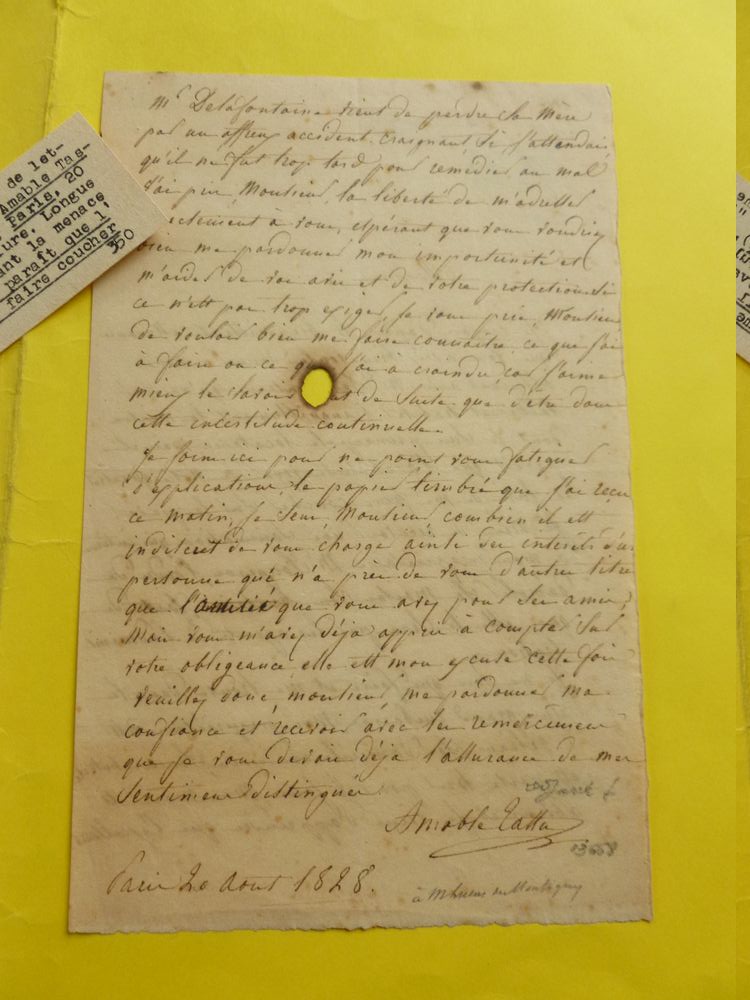 Mr Delafontaine vient de perdre sa Mère
par un affreux accident. craignant, si j'attendais
qu'il ne fut trop tard pour remédier au mal
J'ai pris, Monsieur, la liberté de m'adresser
ectement a vous, espérant que vous voudriez
bien me pardonner mon importunité et
m'aider de vos avis et de votre protection. Si
ce n'est pas trop exiger, je vous prie, Monsieur
de vouloir bien me faire connaitre ce que j'ai
à faire ou ce q j'ai à craindre, car j'aime
mieux le savoir de suite que d'être dans
cette incertitude continuelle.
Je joins ici pour ne point vous fatiguer
d'explications, le papier timbré que j'ai reçu
ce matin, je sens, Monsieur, combien il est
indiscret de vous charger ainsi des interets d'une
personne qui n'a près de vous d'autre titre
que l'amitié que vous avez pour ses amis,
Mais vous m'avez déja appris à compter sur
votre obligeance, elle est mon excuse cette fois
veuillez donc, monsieur, me pardonner ma
confiance et recevoir avec les remerciemens
que je vous devais déja l'assurance de mes
sentimens distingués
Amable Tastu
13668
Paris 20 Aout 1828.
à Mr Lucas de Montigny
de let-
Amable Tas-
Paris, 20
ure, Longue
ant la menace
paraît que l'
faire coucher
350